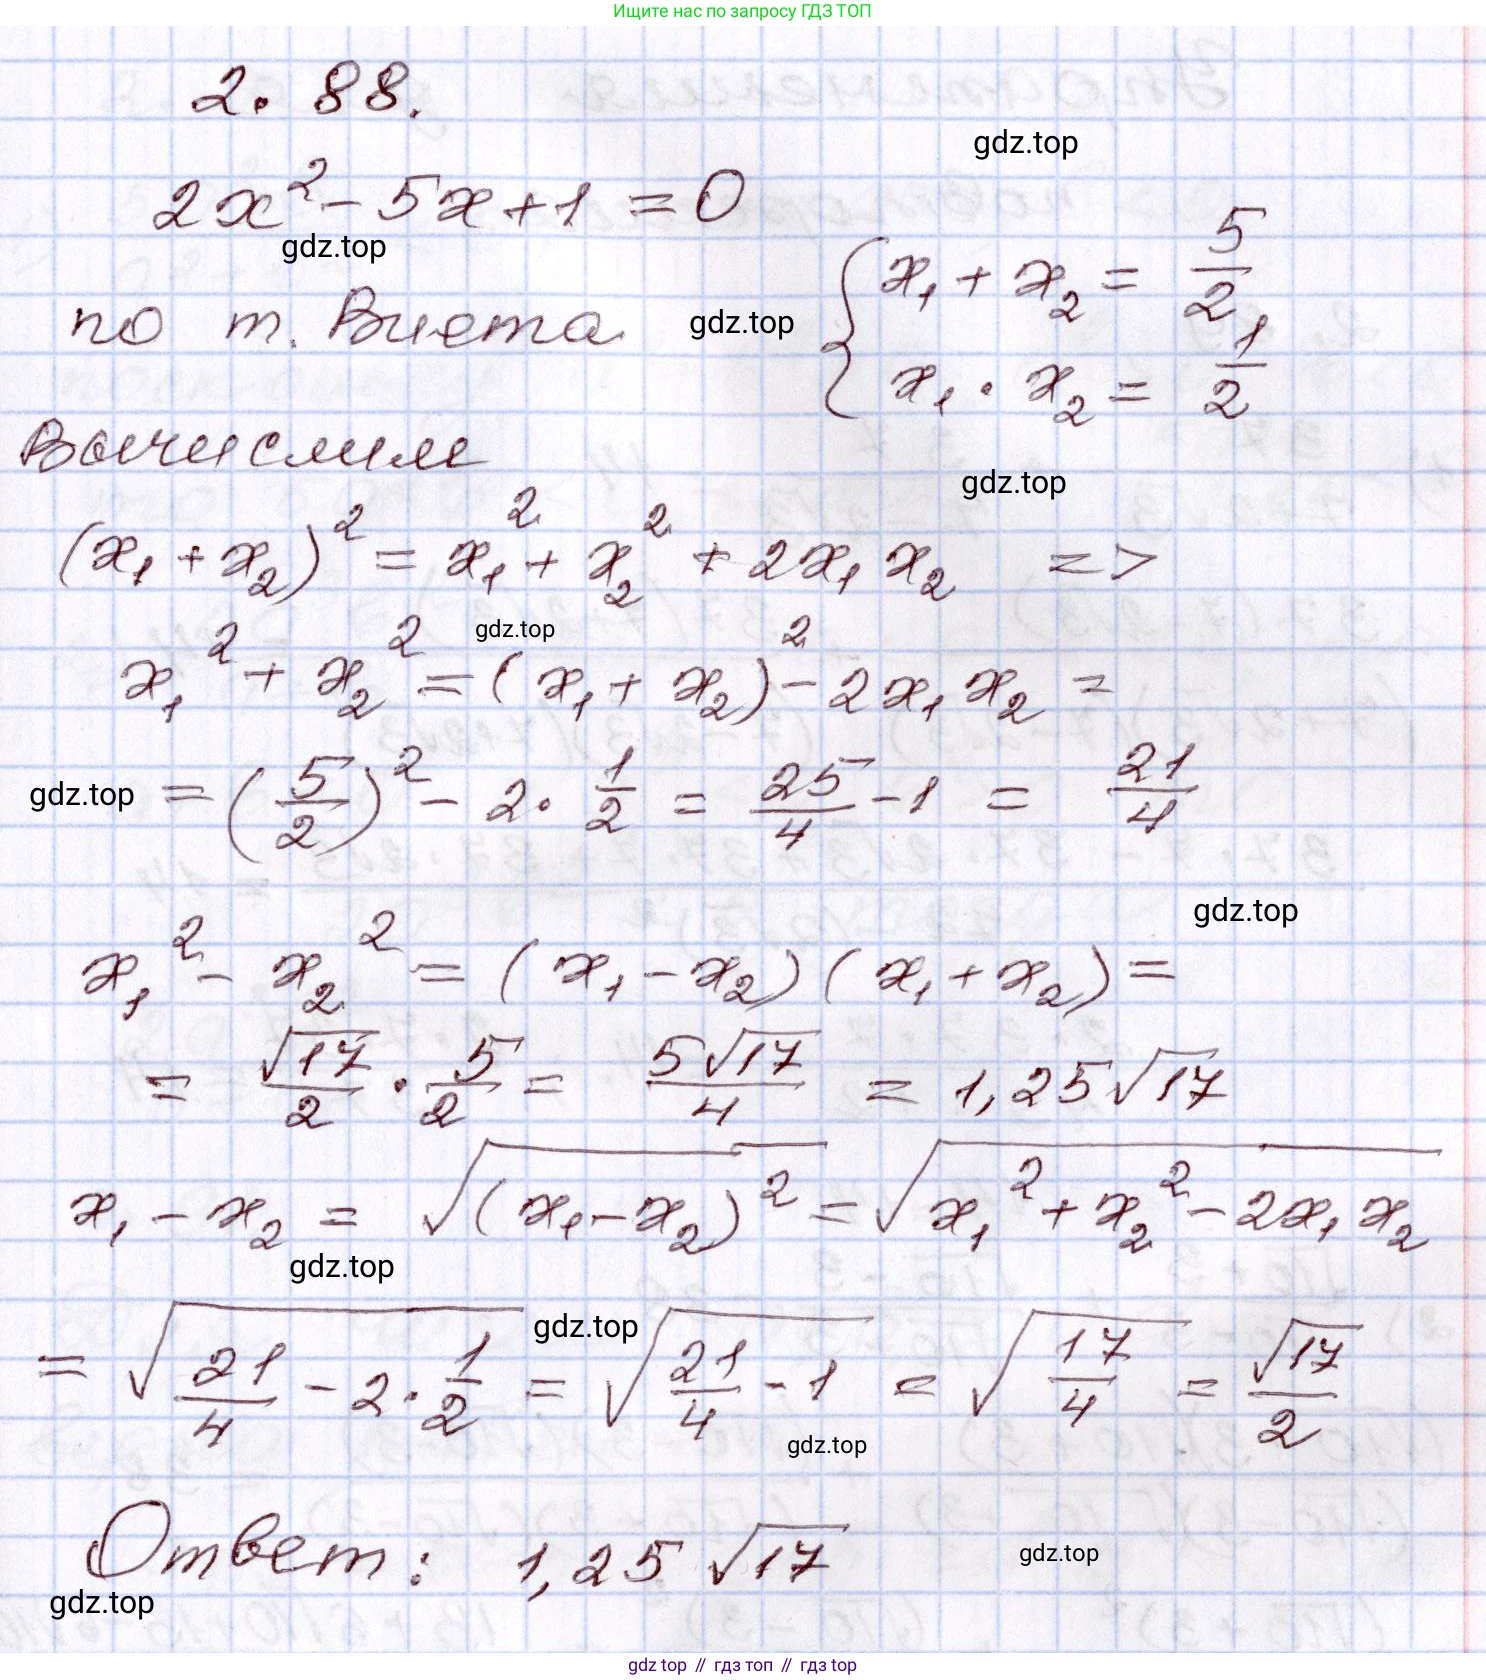 Ищите нас по запросу ГДЗ ТОП
2.88.
gdz.top
2x² - 5x + 1 = 0
gdz.top
{ x₁ + x₂ = 5/2
по т. Виета
gdz.top
x₁ · x₂ = 1/2
Вычислим
gdz.top
(x₁ + x₂)² = x₁² + x₂² + 2x₁x₂ =>
gdz.top
x₁² + x₂² = (x₁ + x₂)² - 2x₁x₂ =
gdz.top
= (5/2)² - 2 · 1/2 = 25/4 - 1 = 21/4
gdz.top
x₁² - x₂² = (x₁ - x₂)(x₁ + x₂) =
= √17/2 · 5/2 = 5√17/4 = 1,25√17
x₁ - x₂ = √((x₁ - x₂)²) = √(x₁² + x₂² - 2x₁x₂)
gdz.top
gdz.top
= √(21/4 - 2 · 1/2) = √(21/4 - 1) = √(17/4) = √17/2
gdz.top
Ответ: 1,25√17
gdz.top
gdz.top
gdz top // гдз топ // гдз top